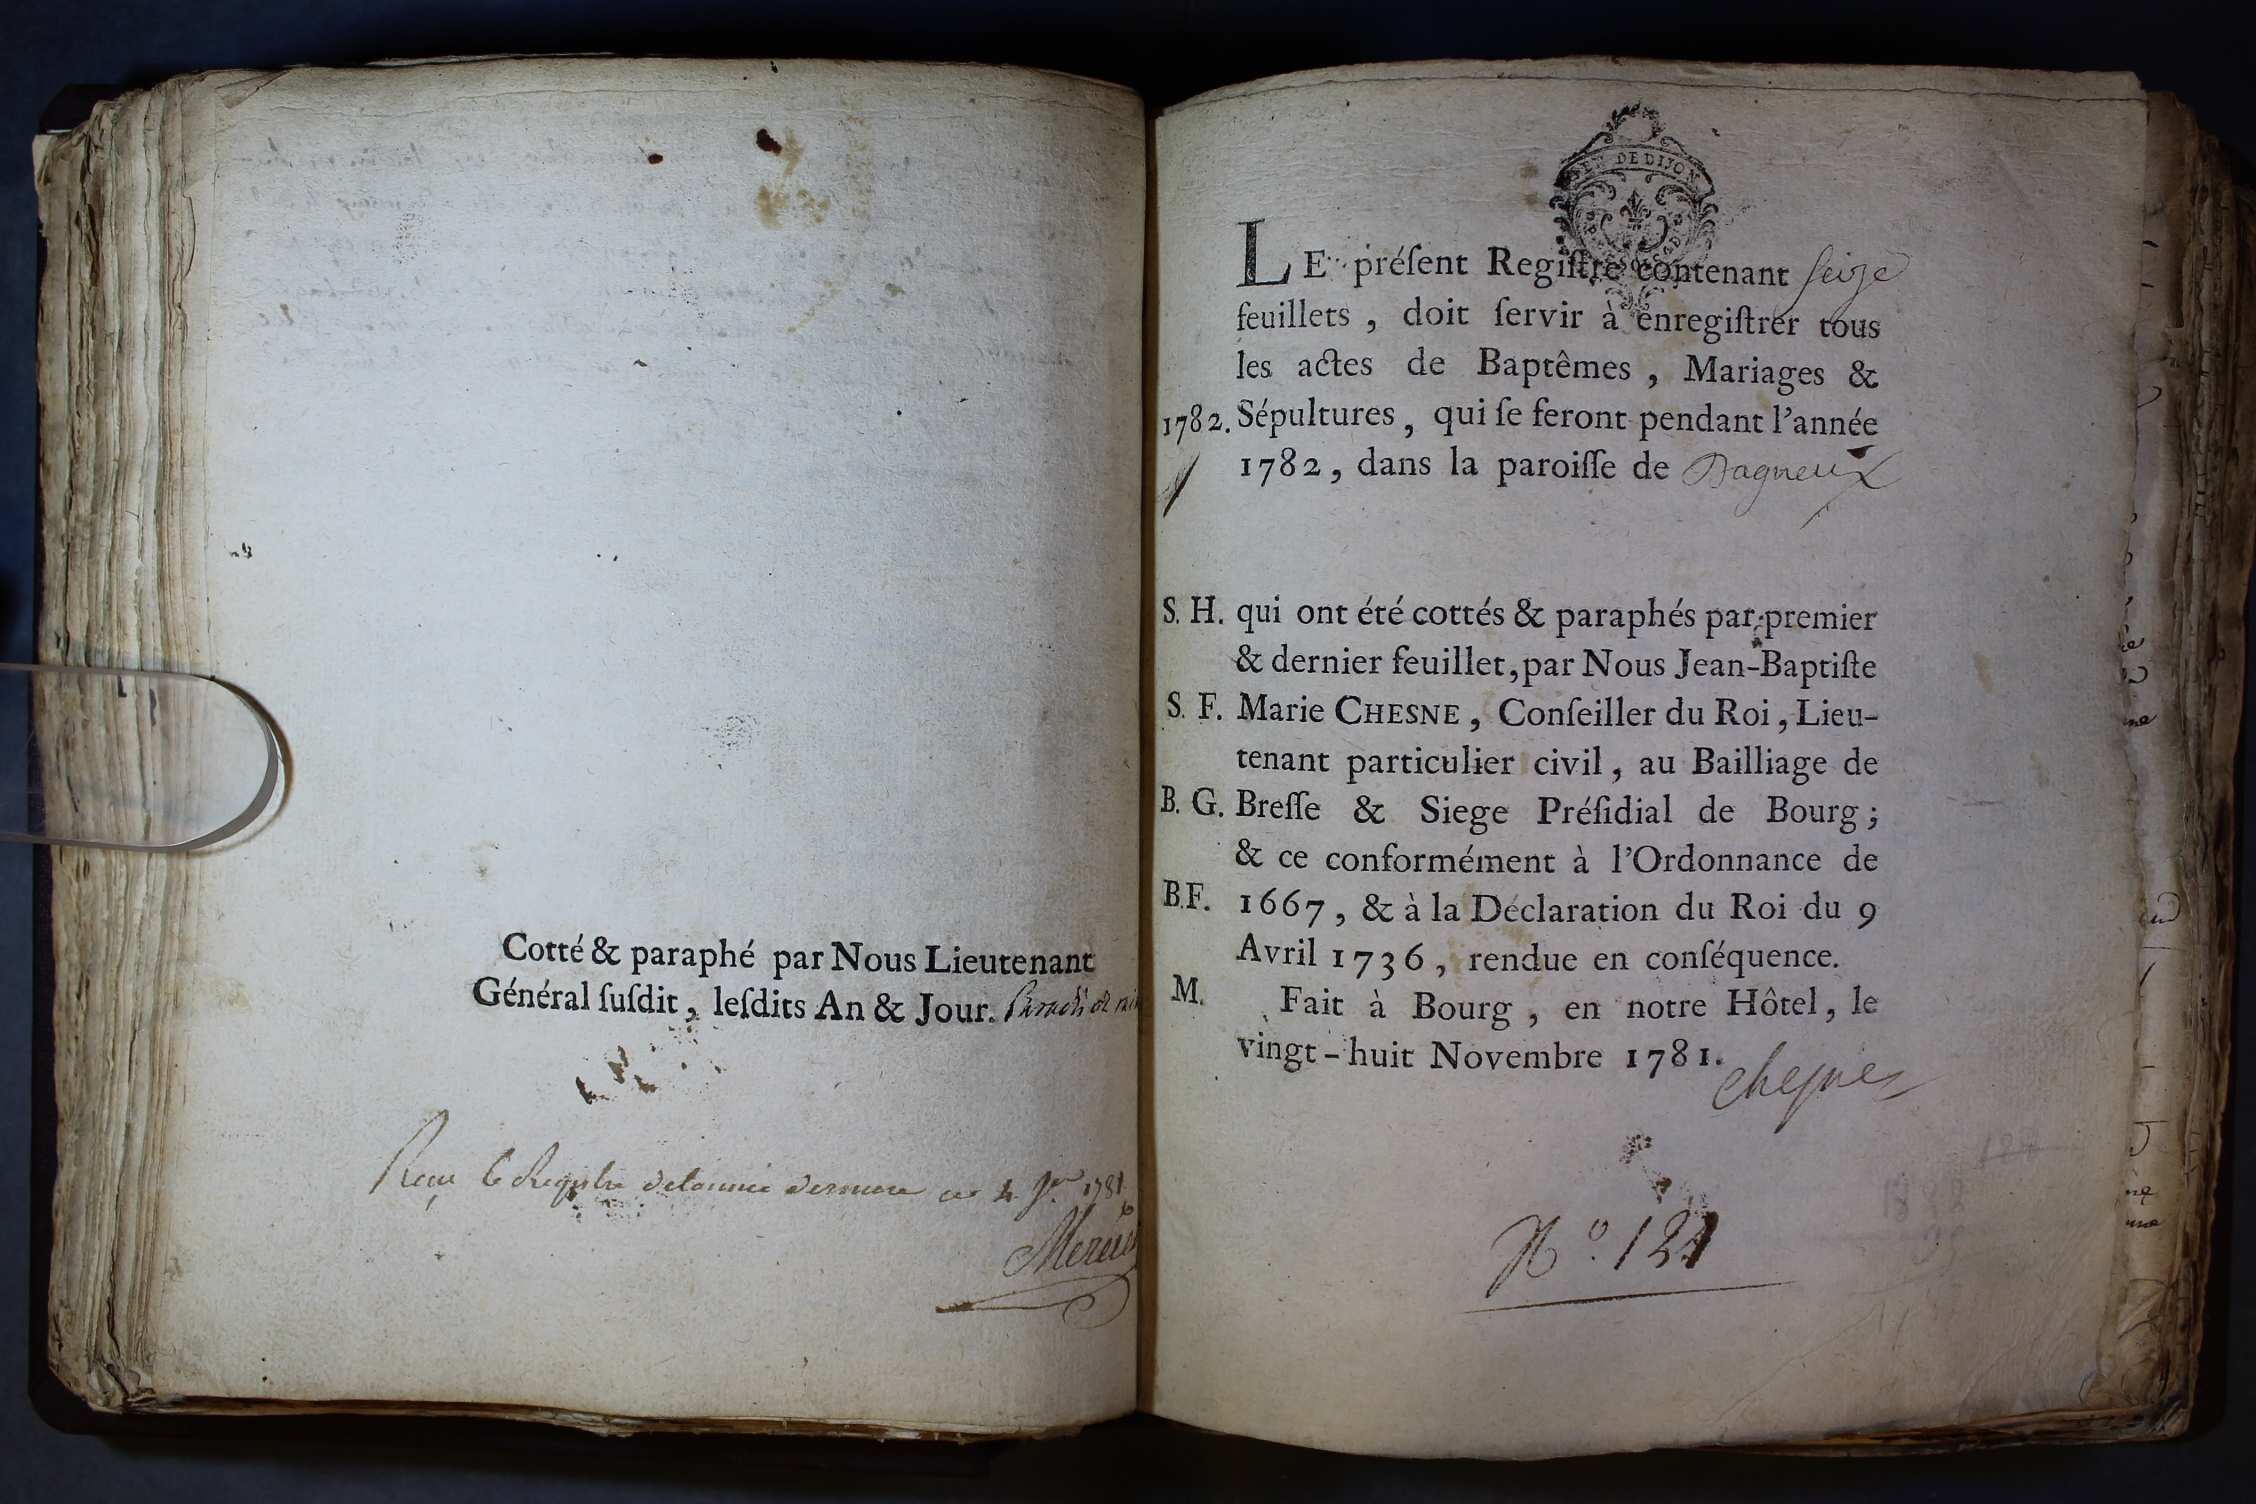 Cotté & paraphé par Nous Lieutenant
Général ſuſdit, leſdits An & Jour.
Reçu le Regiſtre de l'année derniere ce 4 Jer 1781
DE DIJON
LE préſent Regiſtre contenant ſeize
feuillets, doit ſervir à enregiſtrer tous
les actes de Baptêmes, Mariages &
1782. Sépultures, qui ſe feront pendant l'année
1782, dans la paroiſſe de Dagneux
S. H. qui ont été cottés & paraphés par premier
& dernier feuillet, par Nous Jean-Baptiſte
S. F. Marie CHESNE, Conſeiller du Roi, Lieu-
tenant particulier civil, au Bailliage de
B. G. Breſſe & Siege Préſidial de Bourg;
& ce conformément à l'Ordonnance de
B. F. 1667, & à la Déclaration du Roi du 9
Avril 1736, rendue en conſéquence.
M. Fait à Bourg, en notre Hôtel, le
vingt-huit Novembre 1781.
Chesne
No. 121